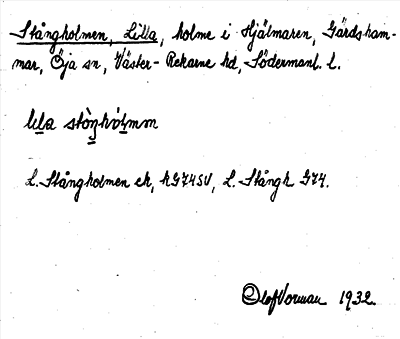 Stångholmen, Lilla, holme i Hjälmaren, Gärdsham-
mar, Öja sn, Väster-Rekarne hd, Södermanl. l.
lıla stòŋhòlmɯn
L. Stångholmen ek, hG74SV, L. Stångh G74.
Olof Vorman 1932.